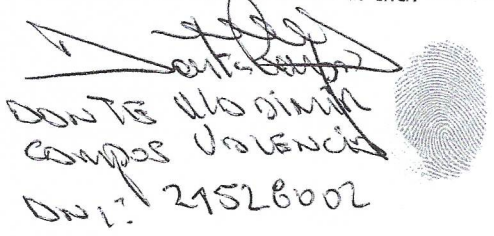 DANTE VLADIMIR
CAMPOS VALENCIA
DNI: 21526002